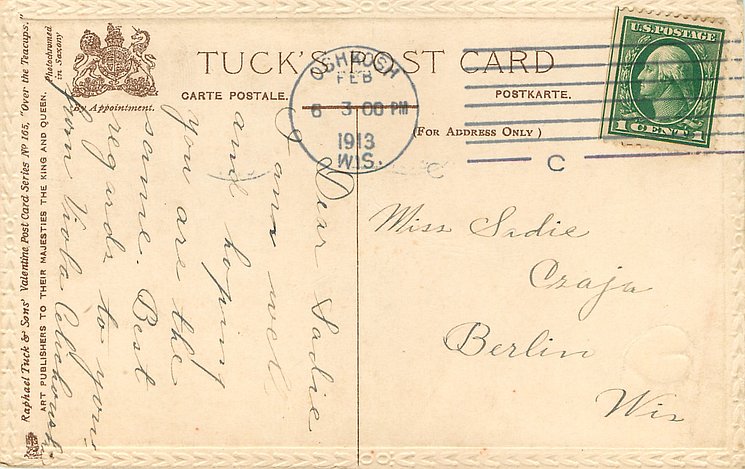 TUCK'S POST CARD
CARTE POSTALE.
POSTKARTE.
(For Address Only)
By Appointment.
Photochromed
in Saxony
Raphael Tuck & Sons' Valentine Post Card Series Nº 165, "Over the Teacups."
ART PUBLISHERS TO THEIR MAJESTIES THE KING AND QUEEN.
OSHKOSH
FEB
6 3 00 PM
1913
WIS.
C
U.S. POSTAGE
1 CENT 1
Dear Sadie
I am well
and hoping
you are the
same. Best
regards to you
from Viola
Miss Sadie
Czaja
Berlin
Wis